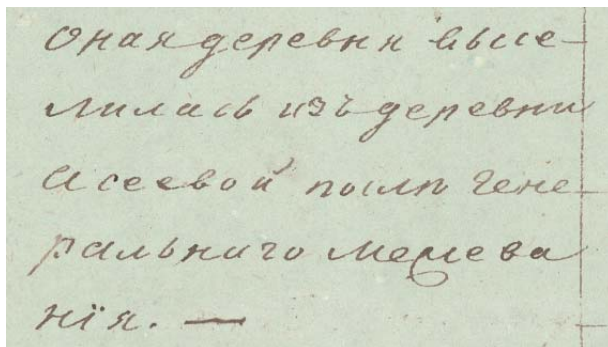 оная деревня высе-
лилась изъ деревни
Асеевой послѣ Гене-
ральнаго Межева
нія. —